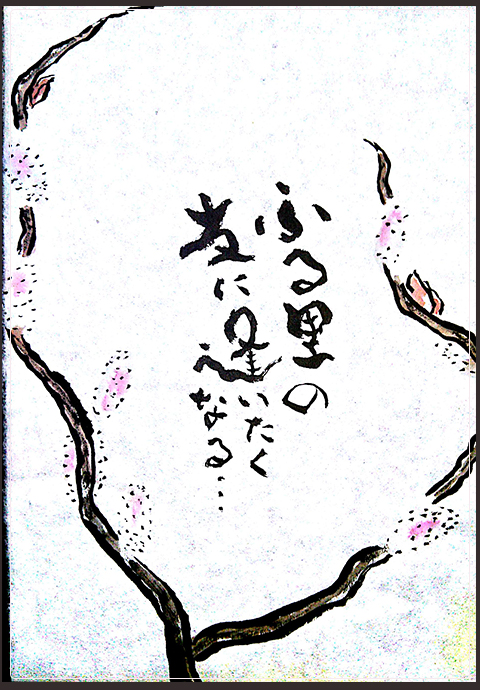 ふる里の
友に逢いたく
なる…